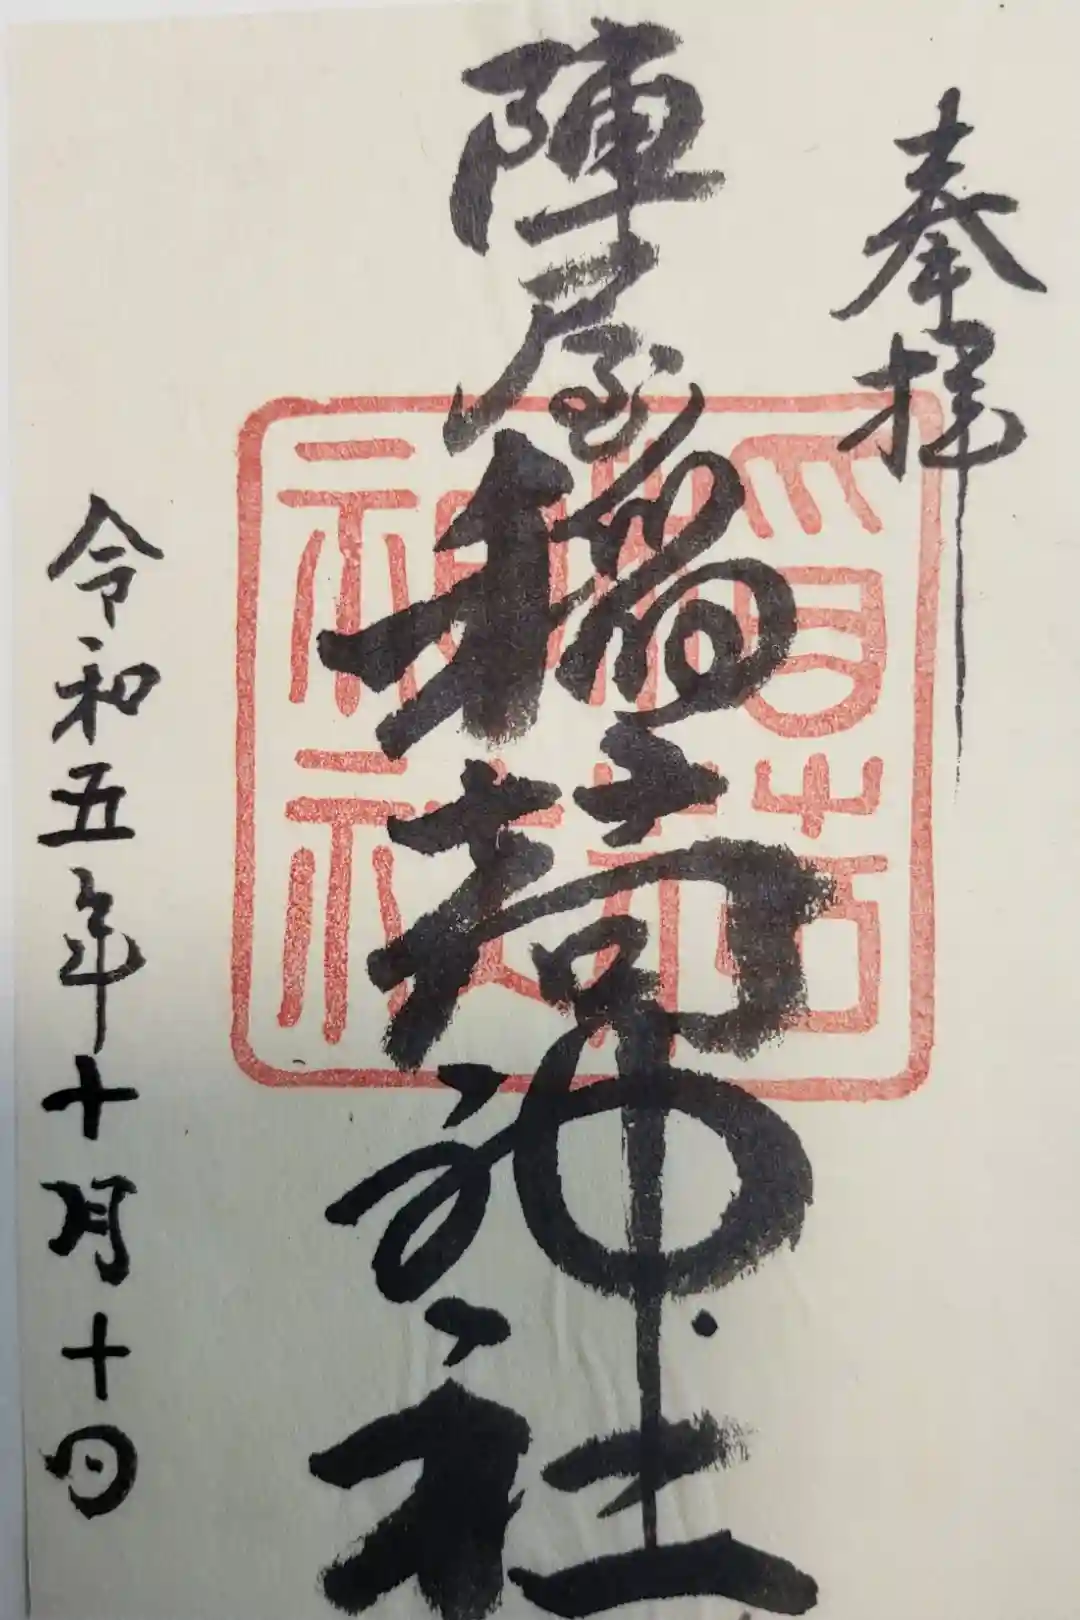 奉拝
陣屋稲荷神社
稲荷
神社
令和五年十月十日